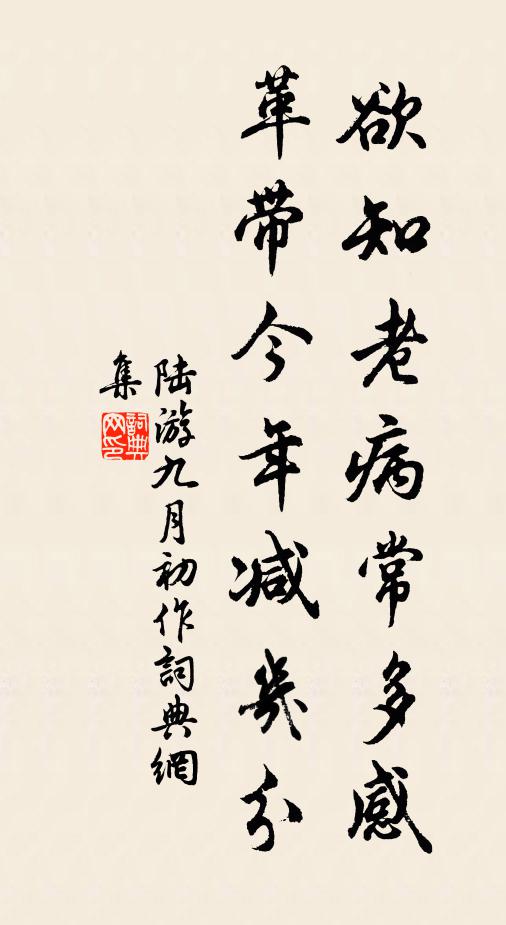 欲知老病常多感
革带今年减几分
陆游九月初作詞典網
集
詞典
网印